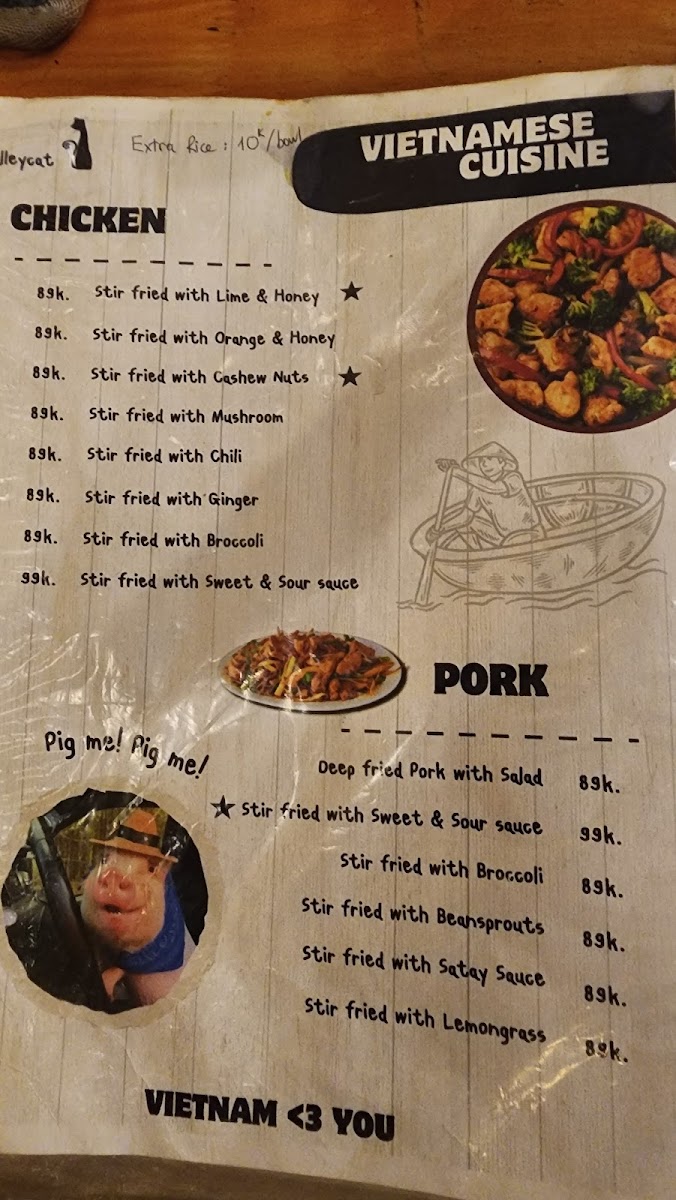 lleycat
Extra Rice : 10k/bowl
VIETNAMESE
CUISINE
CHICKEN
89k. Stir fried with Lime & Honey
89k. Stir fried with Orange & Honey
89k. Stir fried with Cashew Nuts
89k. Stir fried with Mushroom
89k. Stir fried with Chili
89k. Stir fried with Ginger
89k. Stir fried with Broccoli
99k. Stir fried with Sweet & Sour sauce
PORK
Pig me! Pig me!
Deep fried Pork with Salad 89k.
Stir fried with Sweet & Sour sauce 99k.
Stir fried with Broccoli 89k.
Stir fried with Beansprouts 89k.
Stir fried with Satay Sauce 89k.
Stir fried with Lemongrass 89k.
VIETNAM <3 YOU